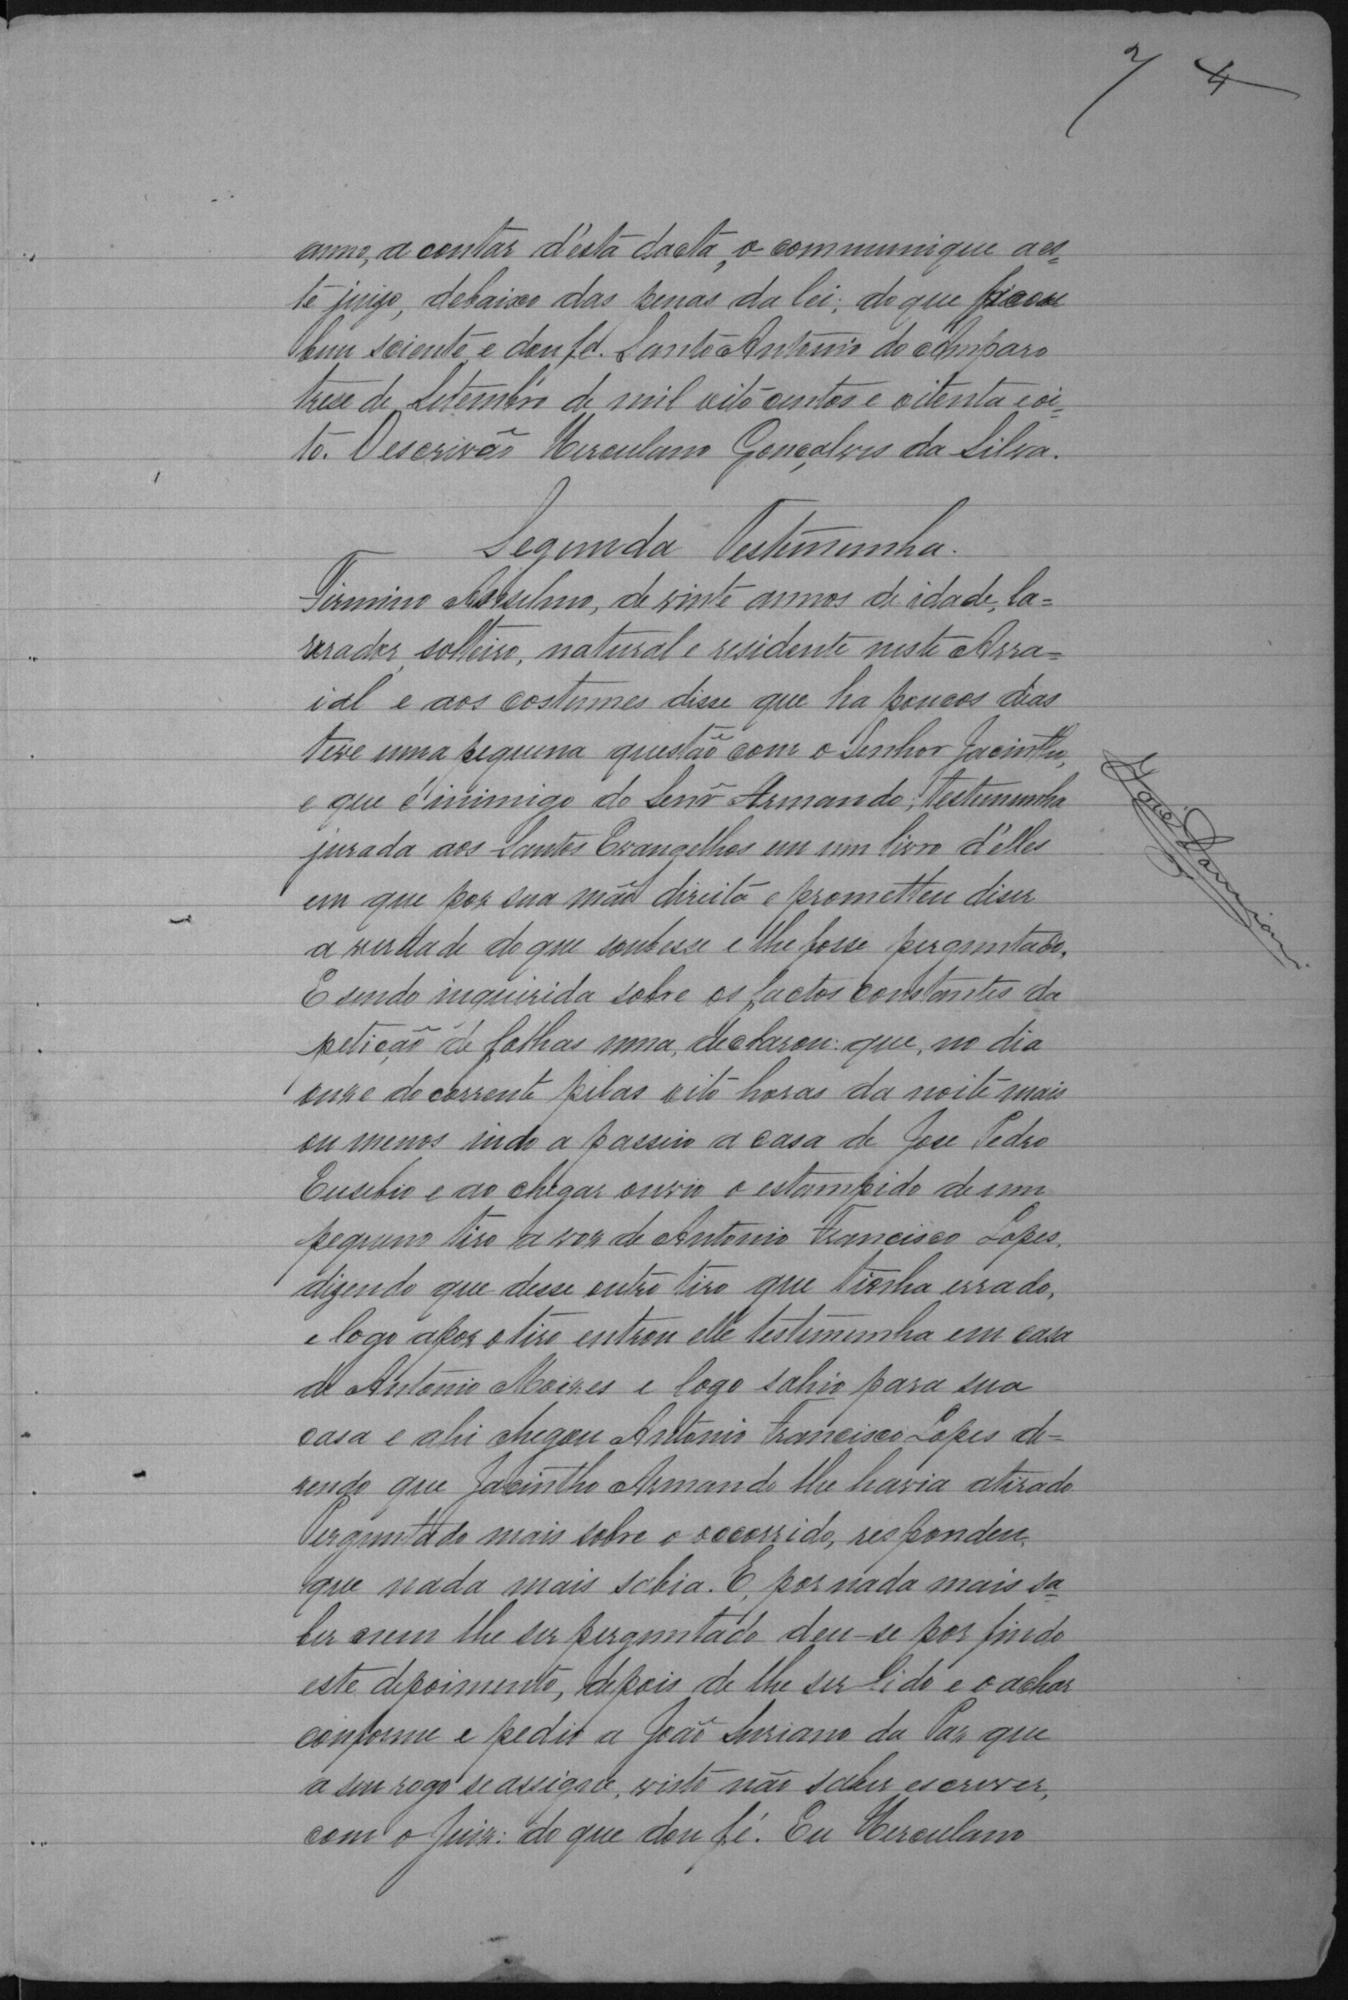 7 4
anno, a contar d'esta dacta, o communique a es=
te juizo, debaixo das penas da lei; do que ficou
bem sciente, e dou fé. Santo Antonio do Amparo
trese de Setembro de mil oito centos e oitenta e oi=
to. O escrivão Herculano Gonçalves da Silva.
Segunda Testemunha.
Firmino Anselmo, de vinte annos de idade, la=
vrador, solteiro, natural e residente neste Arra=
ial e aos costumes disse que ha poucos dias
teve uma pequena questão com o Senhor Jacintho,
e que é inimigo do Senr Armando; testemunha
jurada aos Santos Evangelhos em um livro d'elles
em que por sua mão direita e prometteu diser
a verdade do que soubesse e lhe fosse perguntado.
E sendo inquirida sobre os factos constantes da
petição de folhas uma, declarou: que, no dia
onze do corrente pelas oito horas da noite mais
ou menos indo a passeio a casa de Jose Pedro
Eusebio e ao chegar ouvio o estampido de um
pequeno tiro a voz de Antonio Francisco Lopes,
dizendo que desse outro tiro que tinha errado,
e logo apoz o tiro entrou elle testemunha em casa
de Antonio Moizes e logo sahio para sua
casa e ahi chegou Antonio Francisco Lopes di=
zendo que Jacintho Armando lhe havia atirado
Perguntado mais sobre o occorrido, respondeu
que nada mais sabia. E, por nada mais sa=
ber nem lhe ser perguntado deu-se por findo
este depoimento, depois de lhe ser lido e o achar
conforme e pedio a João Suriano da Paz que
a seu rogo se assigne, visto não saber escrever,
com o Juiz: do que dou fé. Eu Herculano